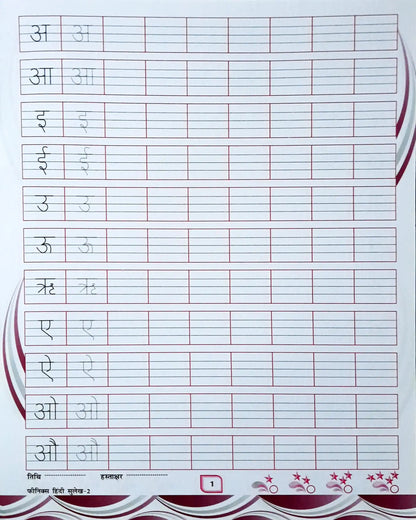 अ अ
आ आ
इ इ
ई ई
उ उ
ऊ ऊ
ऋ ऋ
ए ए
ऐ ऐ
ओ ओ
औ औ
तिथि हस्ताक्षर
फीनिक्स हिंदी सुलेख-2
1